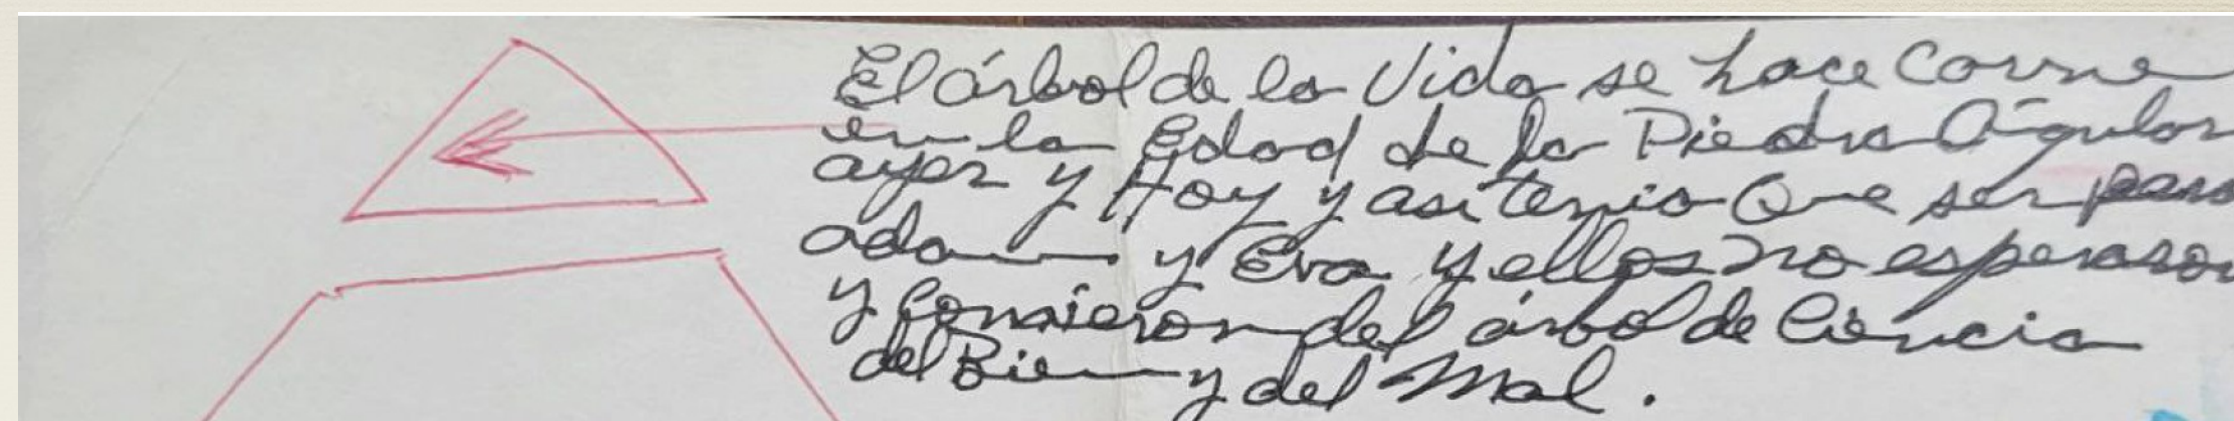 El árbol de la Vida se hace Carne
en la Edad de la Piedra Angular
ayer y Hoy y asi tenia Que ser para
adam y Eva y ellos no esperaron
y Comieron del árbol de Ciencia
del Bien y del Mal.